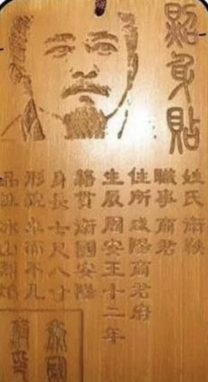 照身貼
姓氏 衛鞅
職事 商君
住所 咸陽商君府
生辰 周安王十二年
籍貫 衛國安陽
身長 七尺八寸
形貌
品性 冰山